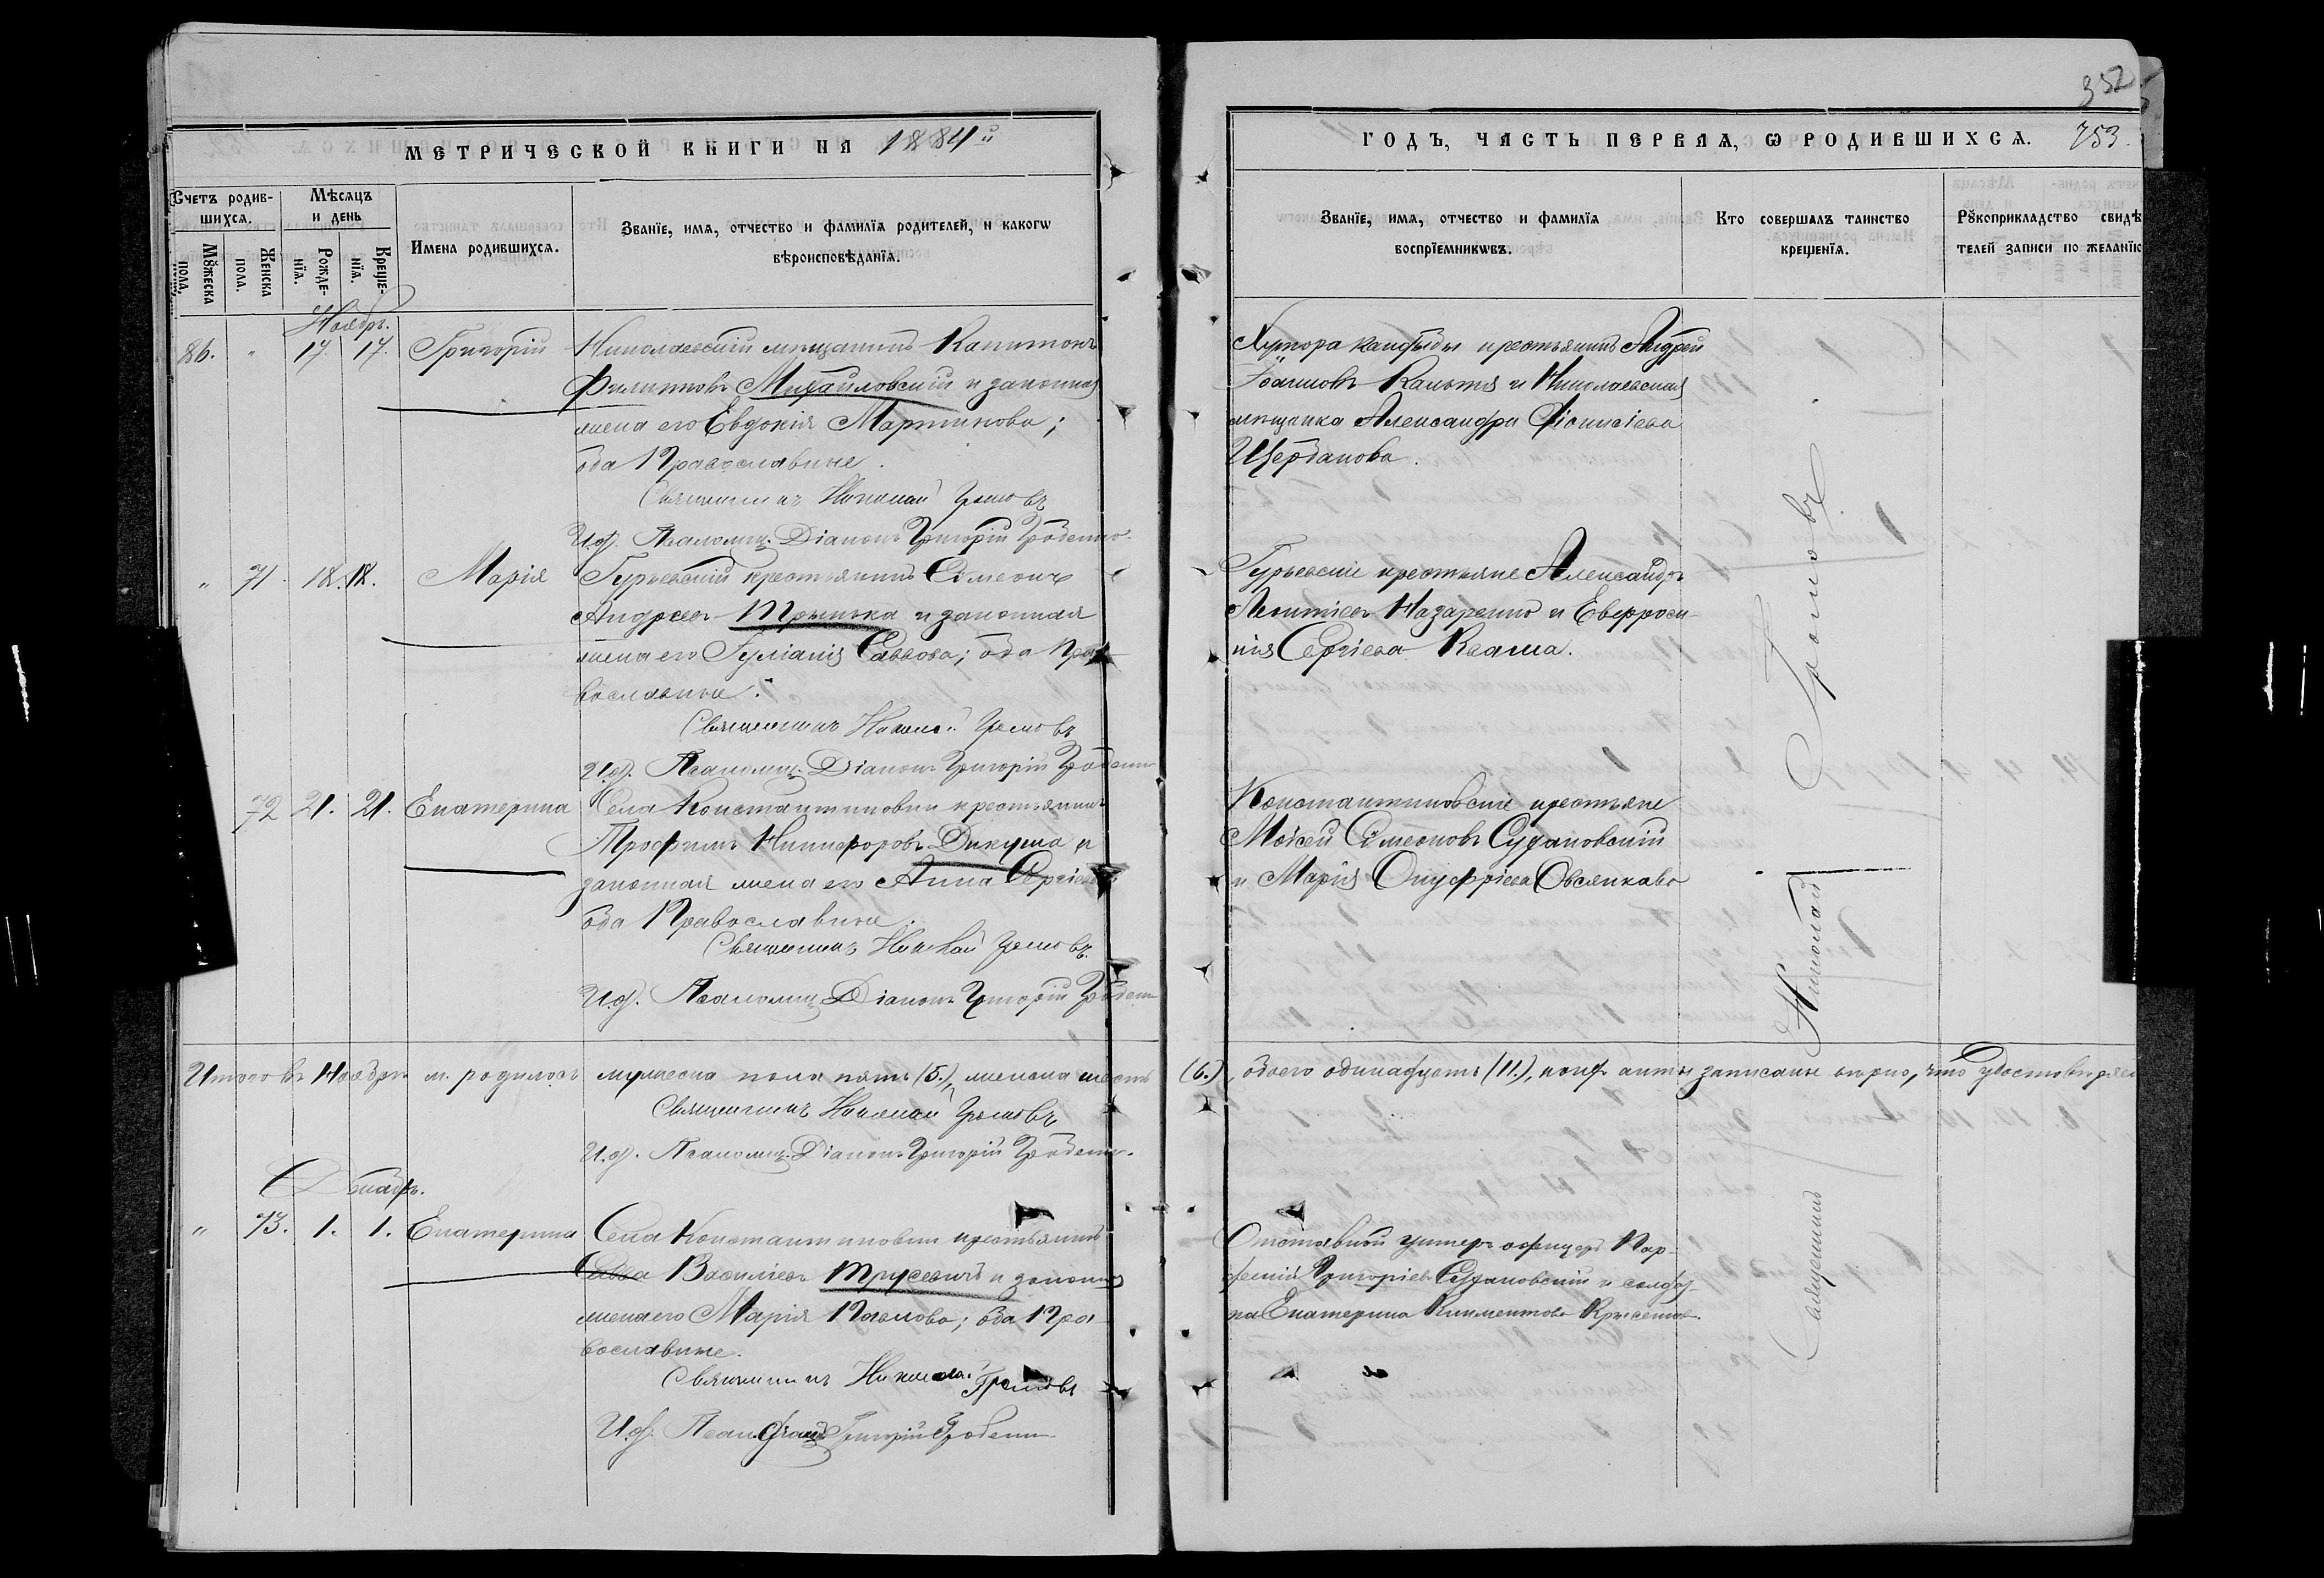 352
МЕТРИЧЕСКОЙ КНИГИ НА 1884й
ГОДЪ, ЧАСТЬ ПЕРВАЯ, Ѡ РОДИВШИХСЯ. 753.
Счетъ родившихся.
Мѣсяцъ и день
Мꙋжеска пола.
Женска пола.
Рожденїя.
Крещенїя.
Имена родившихся.
Званїе, имя, отчество и фамилїя родителей, и какогѡ
вѣроисповѣданїя.
Званїе, имя, отчество и фамилїя
воспрїемникѡвъ.
Кто совершалъ таинство
крещенїя.
Рꙋкоприкладство свидѣ
телей записи по желанїю
Ноябрь.
86. " 17. 17. Григорій Николаевскій мѣщанинъ Капитонъ
Филиповъ Михайловскій и законная
жена его Евдокія Мартинова;
оба Православные.
Священникъ Николай Громовъ
И. д. Псаломщ. Діаконъ Григорій Гробенко.
Хутора крестьянинъ Андрей
Іоанновъ и Николаевская
мѣщанка Александра Діонисіева
Щербакова.
" 71. 18. 18. Марія Гурьевскій крестьянинъ Симеонъ
Андреевъ и законная
жена его Іуліанія Саввова; оба Пра
вославные.
Священникъ Николай Громовъ
И. д. Псаломщ. Діаконъ Григорій
Гурьевскіе крестьяне Александръ
Леонтіевъ Назаренко и Евфроси
нія Сергіева Кваша.
72 21. 21. Екатерина Села Константиновки крестьянинъ
Трофимъ Никифоровъ Дикуша и
законная жена его Анна Сергіева
оба Православные.
Священникъ Николай Громовъ.
И. д. Псаломщ. Діаконъ Григорій
Константиновскіе крестьяне
Мойсей Симеоновъ Судановскій
и Марія Онуфріева Овсянкова
Священникъ Николай Громовъ
Итого въ Ноябрѣ м. родилось мужеска пола пять (5.), женска шесть (6.), обоего одинадцать (11.), акты записаны вѣрно, что удостовѣряемъ
Священникъ Николай Громовъ
И. д. Псаломщ. Діаконъ Григорій Гробенко.
Декабрь.
" 73. 1. 1. Екатерина Села Константиновки крестьянинъ
Савва Василіевъ Трусевичъ и законная
жена его Марія Павлова; оба Пра
вославные.
Священникъ Николай Громовъ
И. д. Псал. Діаконъ Григорій
Отставной унтеръ офицеръ Пар-
феній Григоріевъ Судановскій и солдат-
ка Екатерина Климентова